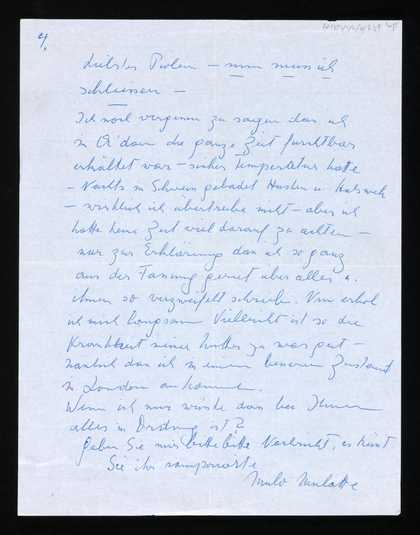 4.
liebster Piolem – nun muss ich
schliessen –
Ich noch vergessen zu sagen dass ich
in A'dam die ganze Zeit furchtbar
erkältet war – sicher Temperatur hatte
– Nachts in Schweiss gebadet Husten u. Halsweh
– wirklich ich übertreibe nicht – aber ich
hatte keine Zeit viel darauf zu achten –
nur zur Erklärung dass ich so ganz
aus der Fassung geriet über alles u.
ihnen so verzweifelt schrieb. Nun erhol
ich mich langsam Vielleicht ist so die
Krankheit meiner Mutter zu was gut –
nämlich dass ich in einem besseren Zustand
in London ankomme.
Wenn ich nur wüsste dass bei Ihnen
alles in Ordnung ist?
geben Sie mir bitte bitte Nachricht, es küsst
Sie ihr ramponierte